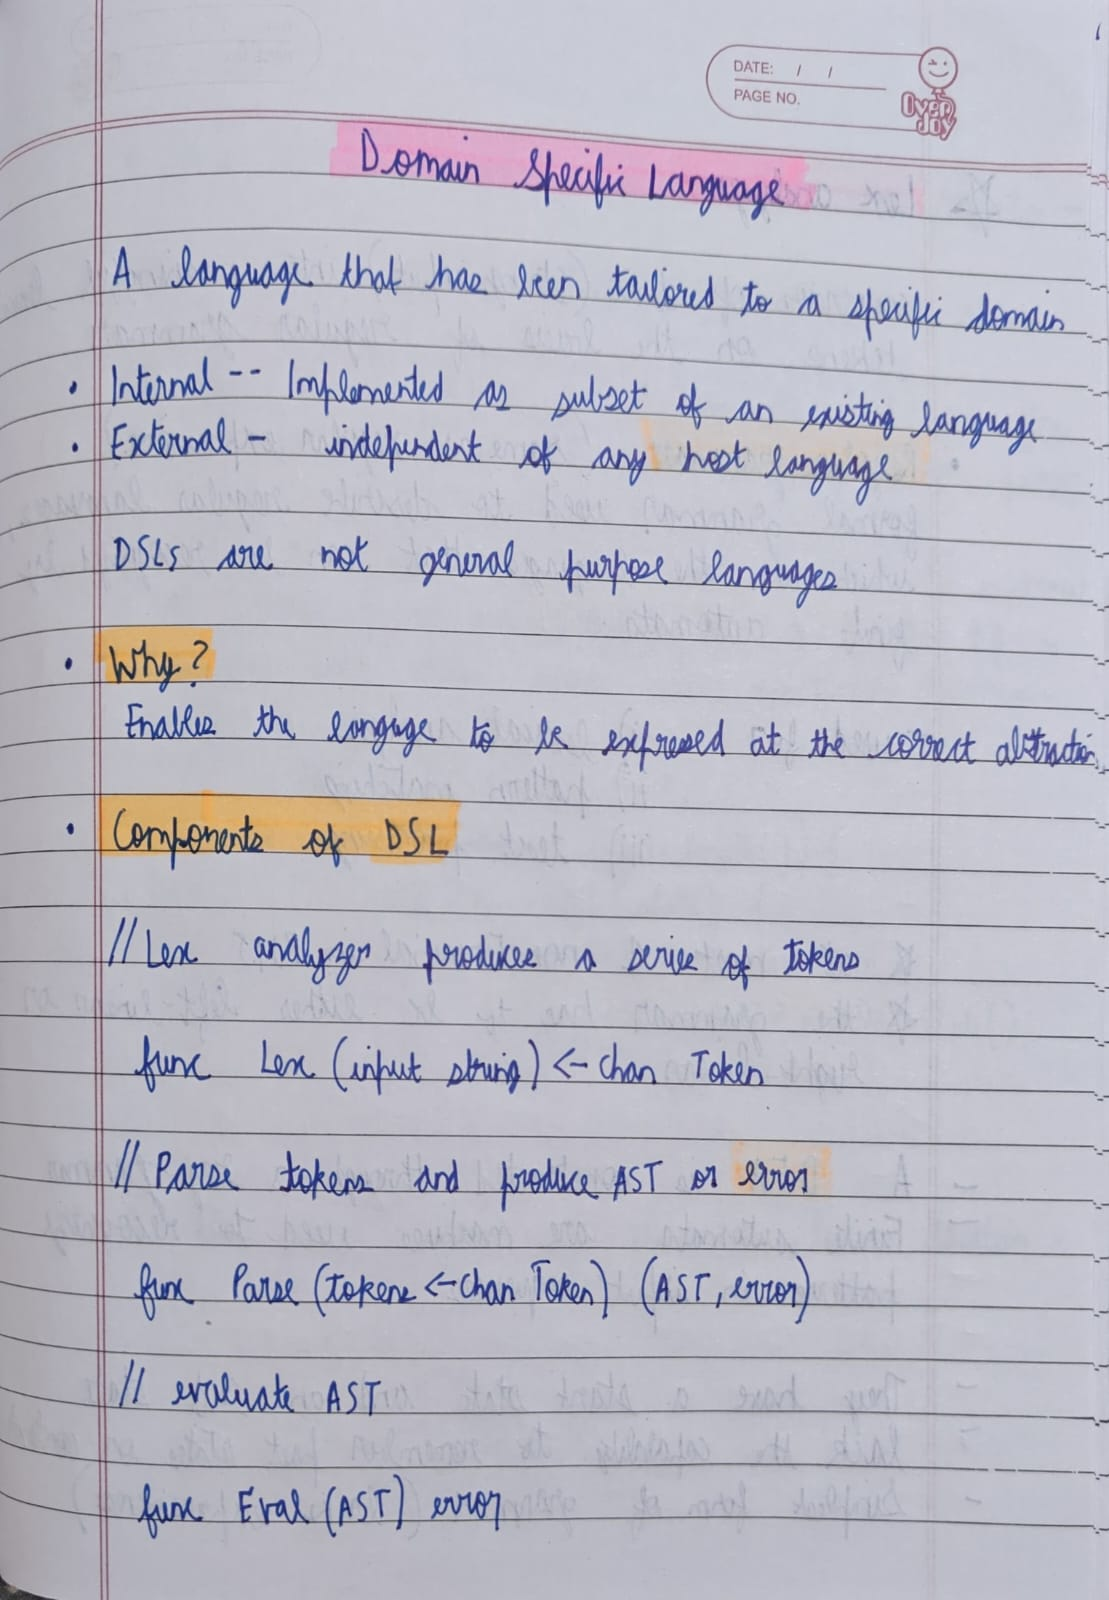 DATE: / /
PAGE NO.
Over
Joy
Domain Specific Language
A language that has been tailored to a specific domain
• Internal -- Implemented as subset of an existing language
• External - independent of any host language
DSLs are not general purpose languages
• Why?
Enables the langage to be expressed at the correct abstraction
• Components of DSL
// Lex analyzer produces a series of tokens
func Lex (input string) <- chan Token
// Parse tokens and produce AST or error
func Parse (tokens <- chan Token) (AST, error)
// evaluate AST
func Eval (AST) error